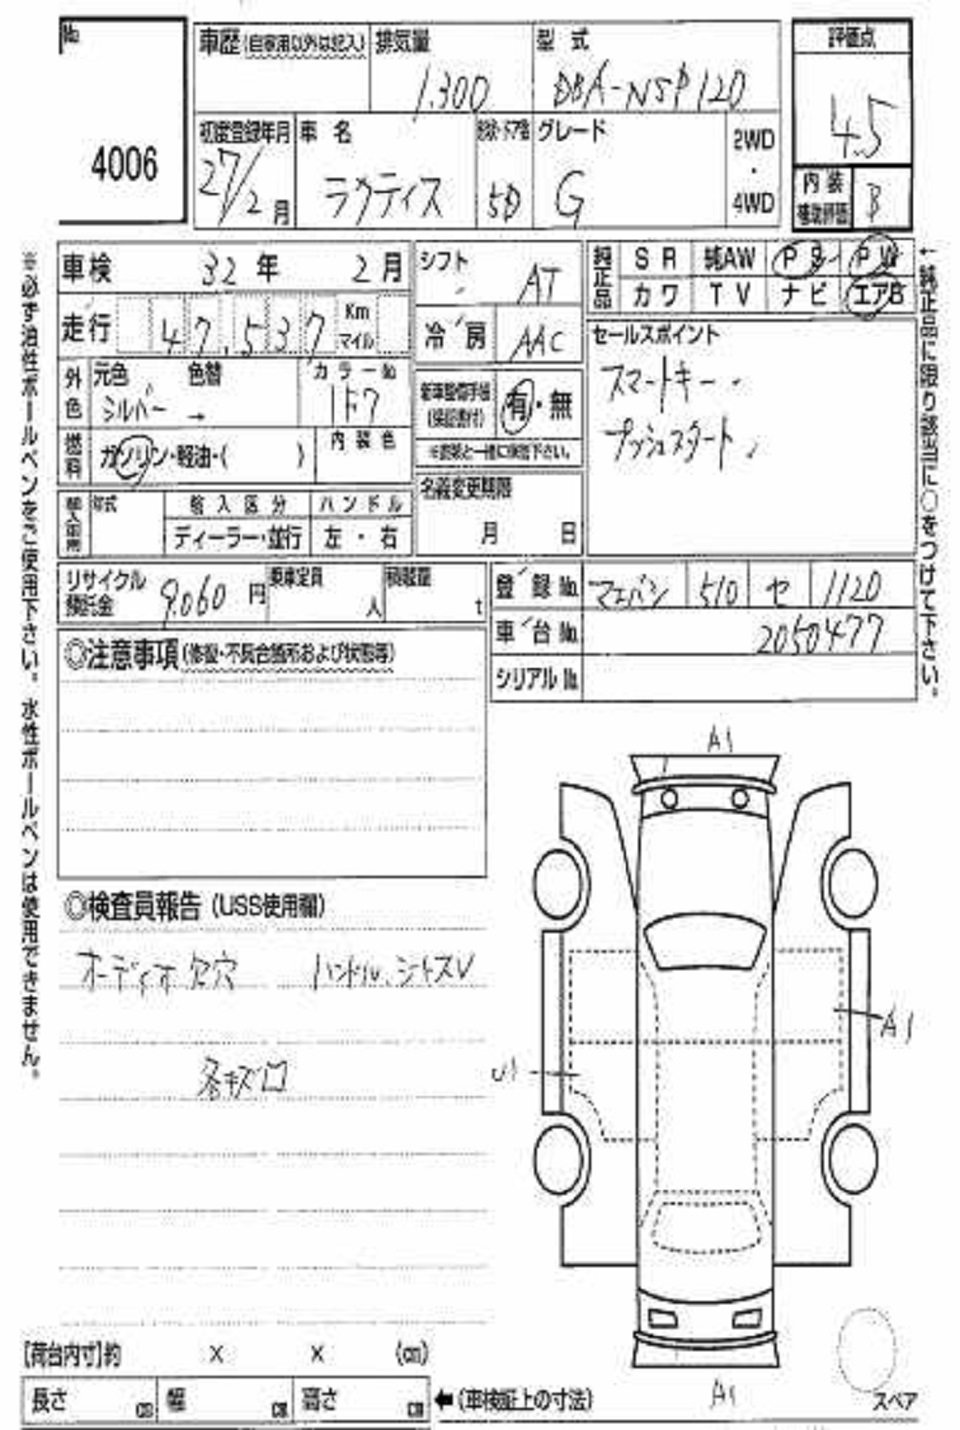 No.
4006
車歴(自家用以外は記入)
排気量
1.300
型 式
DBA-NSP120
評価点
4.5
初度登録年月
27/2月
車 名
ラクティス
5D
グレード
G
2WD
・
4WD
内 装
補助評価
B
車検 32年 2月
シフト
AT
純正品
S R 純AW P S P W
カワ T V ナビ エアB
走行 47,537 Km
マイル
冷 房
AAC
セールスポイント
スマートキー
プッシュスタート
外色
元色 色替
シルバー →
カラーNo.
1F7
(保証書付)
有・無
燃料
ガソリン・軽油・( )
内 装 色
名義変更期限
月 日
輸 入 区 分
ディーラー・並行
ハ ン ド ル
左 ・ 右
リサイクル
預託金
9.060 円
乗車定員
人
積載量
t
登 録 No.
マエバシ 510 セ 1120
車 台 No.
2050477
シリアル No.
◎注意事項(修復・不具合箇所および状態等)
◎検査員報告(USS使用欄)
オーディオ欠穴 ハンドル、シトスレ
各キズ凹
A1
A1
U1
A1
スペア
[荷台内寸]約 × × (cm)
長さ cm 幅 cm 高さ cm
←(車検証上の寸法)
※必ず油性ボールペンをご使用下さい。水性ボールペンは使用できません。
←純正品に限り該当に○をつけて下さい。